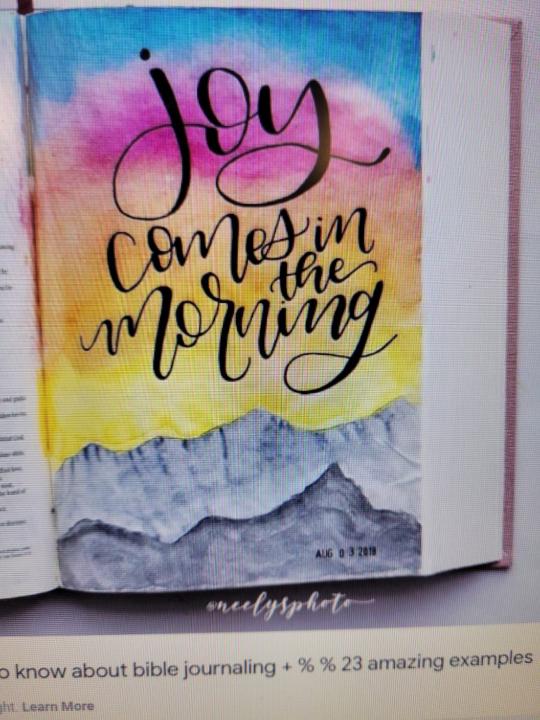 joy
comes in
the
morning
AUG 0 3 2018
@neelysphoto
o know about bible journaling + % % 23 amazing examples
ght. Learn More